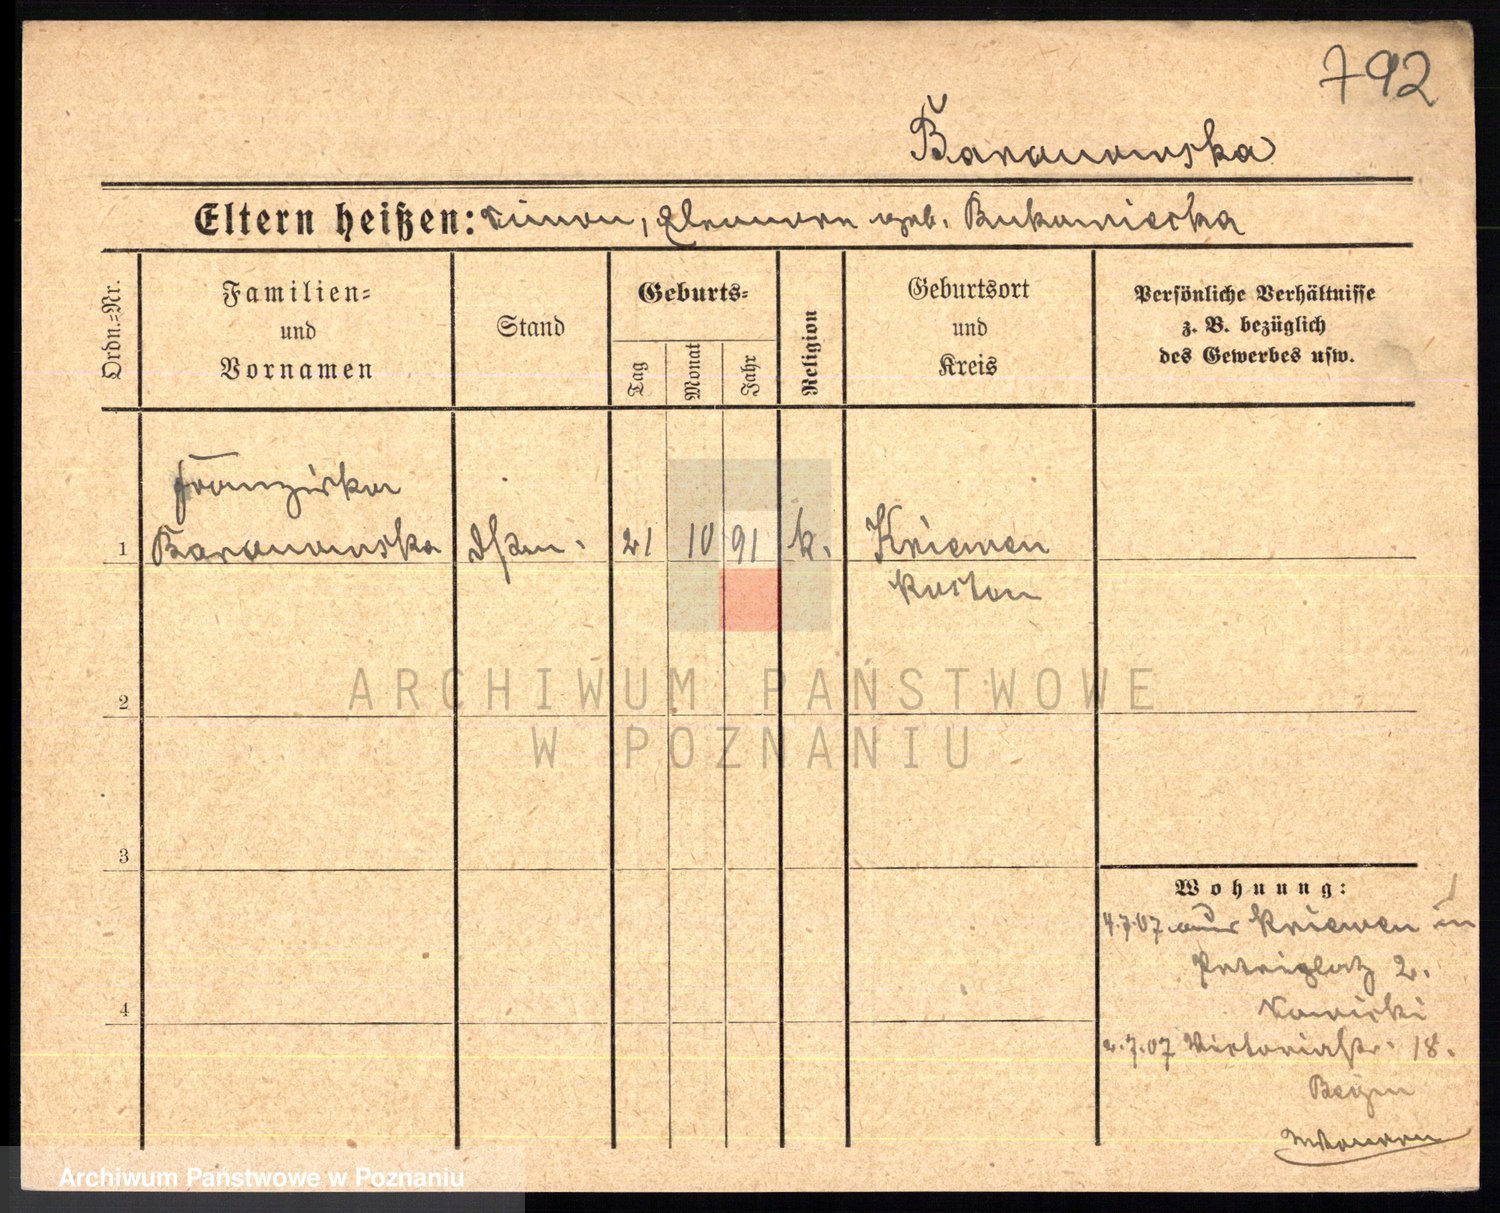 792
Baranowska
Eltern heißen: Simon, Eleonore geb. Bukowiecka
Ordn.=Nr.
Familien=
und
Vornamen
Stand
Geburts=
Tag
Monat
Jahr
Religion
Geburtsort
und
Kreis
Persönliche Verhältnisse
z. B. bezüglich
des Gewerbes usw.
Franziska
1 Baranowska 21 10 91 k. Kriewen
Kosten
2
3
4
Wohnung:
4.7.07 aus Kriewen in
Petriplatz 2.
Sawicki
2.7.07 Victoriastr. 18.
ARCHIWUM PAŃSTWOWE
W POZNANIU
Archiwum Państwowe w Poznaniu